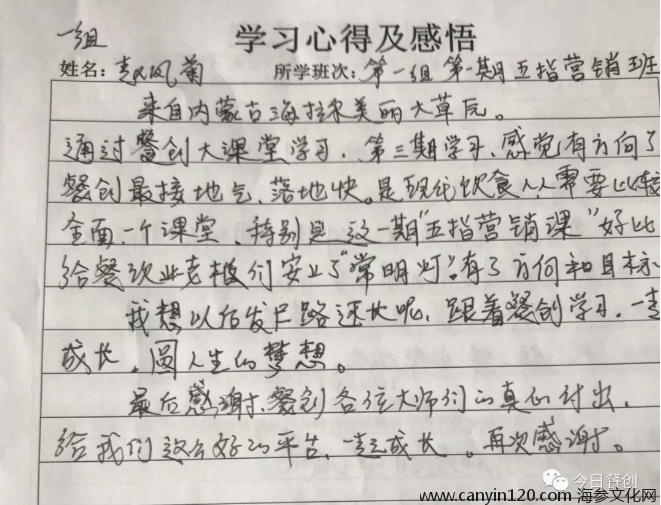 一组 学习心得及感悟
姓名：袁凤菊 所学班次：第一组 第一期五指营销班
来自内蒙古海拉尔美丽大草原。
通过餐创大课堂学习，第三期学习、感觉有方向了
餐创最接地气、落地快。是现代饮食人人需要比较
全面一个课堂、特别是这一期“五指营销课”好比
给餐饮业老板们安上了“常明灯”。有了方向和目标
我想以后发展路还长呢，跟着餐创学习，一起
成长，圆人生的梦想。
最后感谢餐创各位大师们的真心付出，
给我们这么好的平台，一起成长。再次感谢。
今日餐创
www.canyin120.com 海参文化网